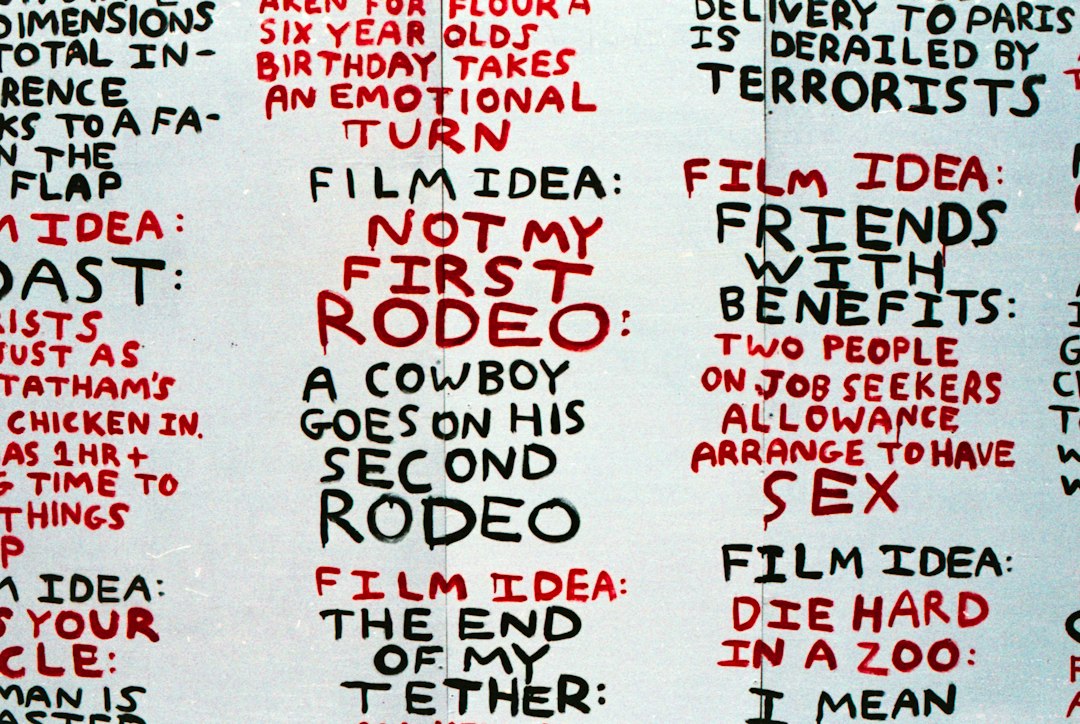 DIMENSIONS
TOTAL IN-
RENCE
KS TO A FA-
N THE
FLAP
M IDEA:
OAST:
ISTS
JUST AS
TATHAM'S
CHICKEN IN.
AS 1HR+
G TIME TO
THINGS
P
M IDEA:
S YOUR
CLE:
MAN IS
ASTED
AKEN FOR FLOUR A
SIX YEAR OLDS
BIRTHDAY TAKES
AN EMOTIONAL
TURN
FILM IDEA:
NOT MY
FIRST
RODEO:
A COWBOY
GOES ON HIS
SECOND
RODEO
FILM IDEA:
THE END
OF MY
TETHER:
DELIVERY TO PARIS
IS DERAILED BY
TERRORISTS
FILM IDEA:
FRIENDS
WITH
BENEFITS:
TWO PEOPLE
ON JOB SEEKERS
ALLOWANCE
ARRANGE TO HAVE
SEX
FILM IDEA:
DIE HARD
IN A ZOO:
I MEAN